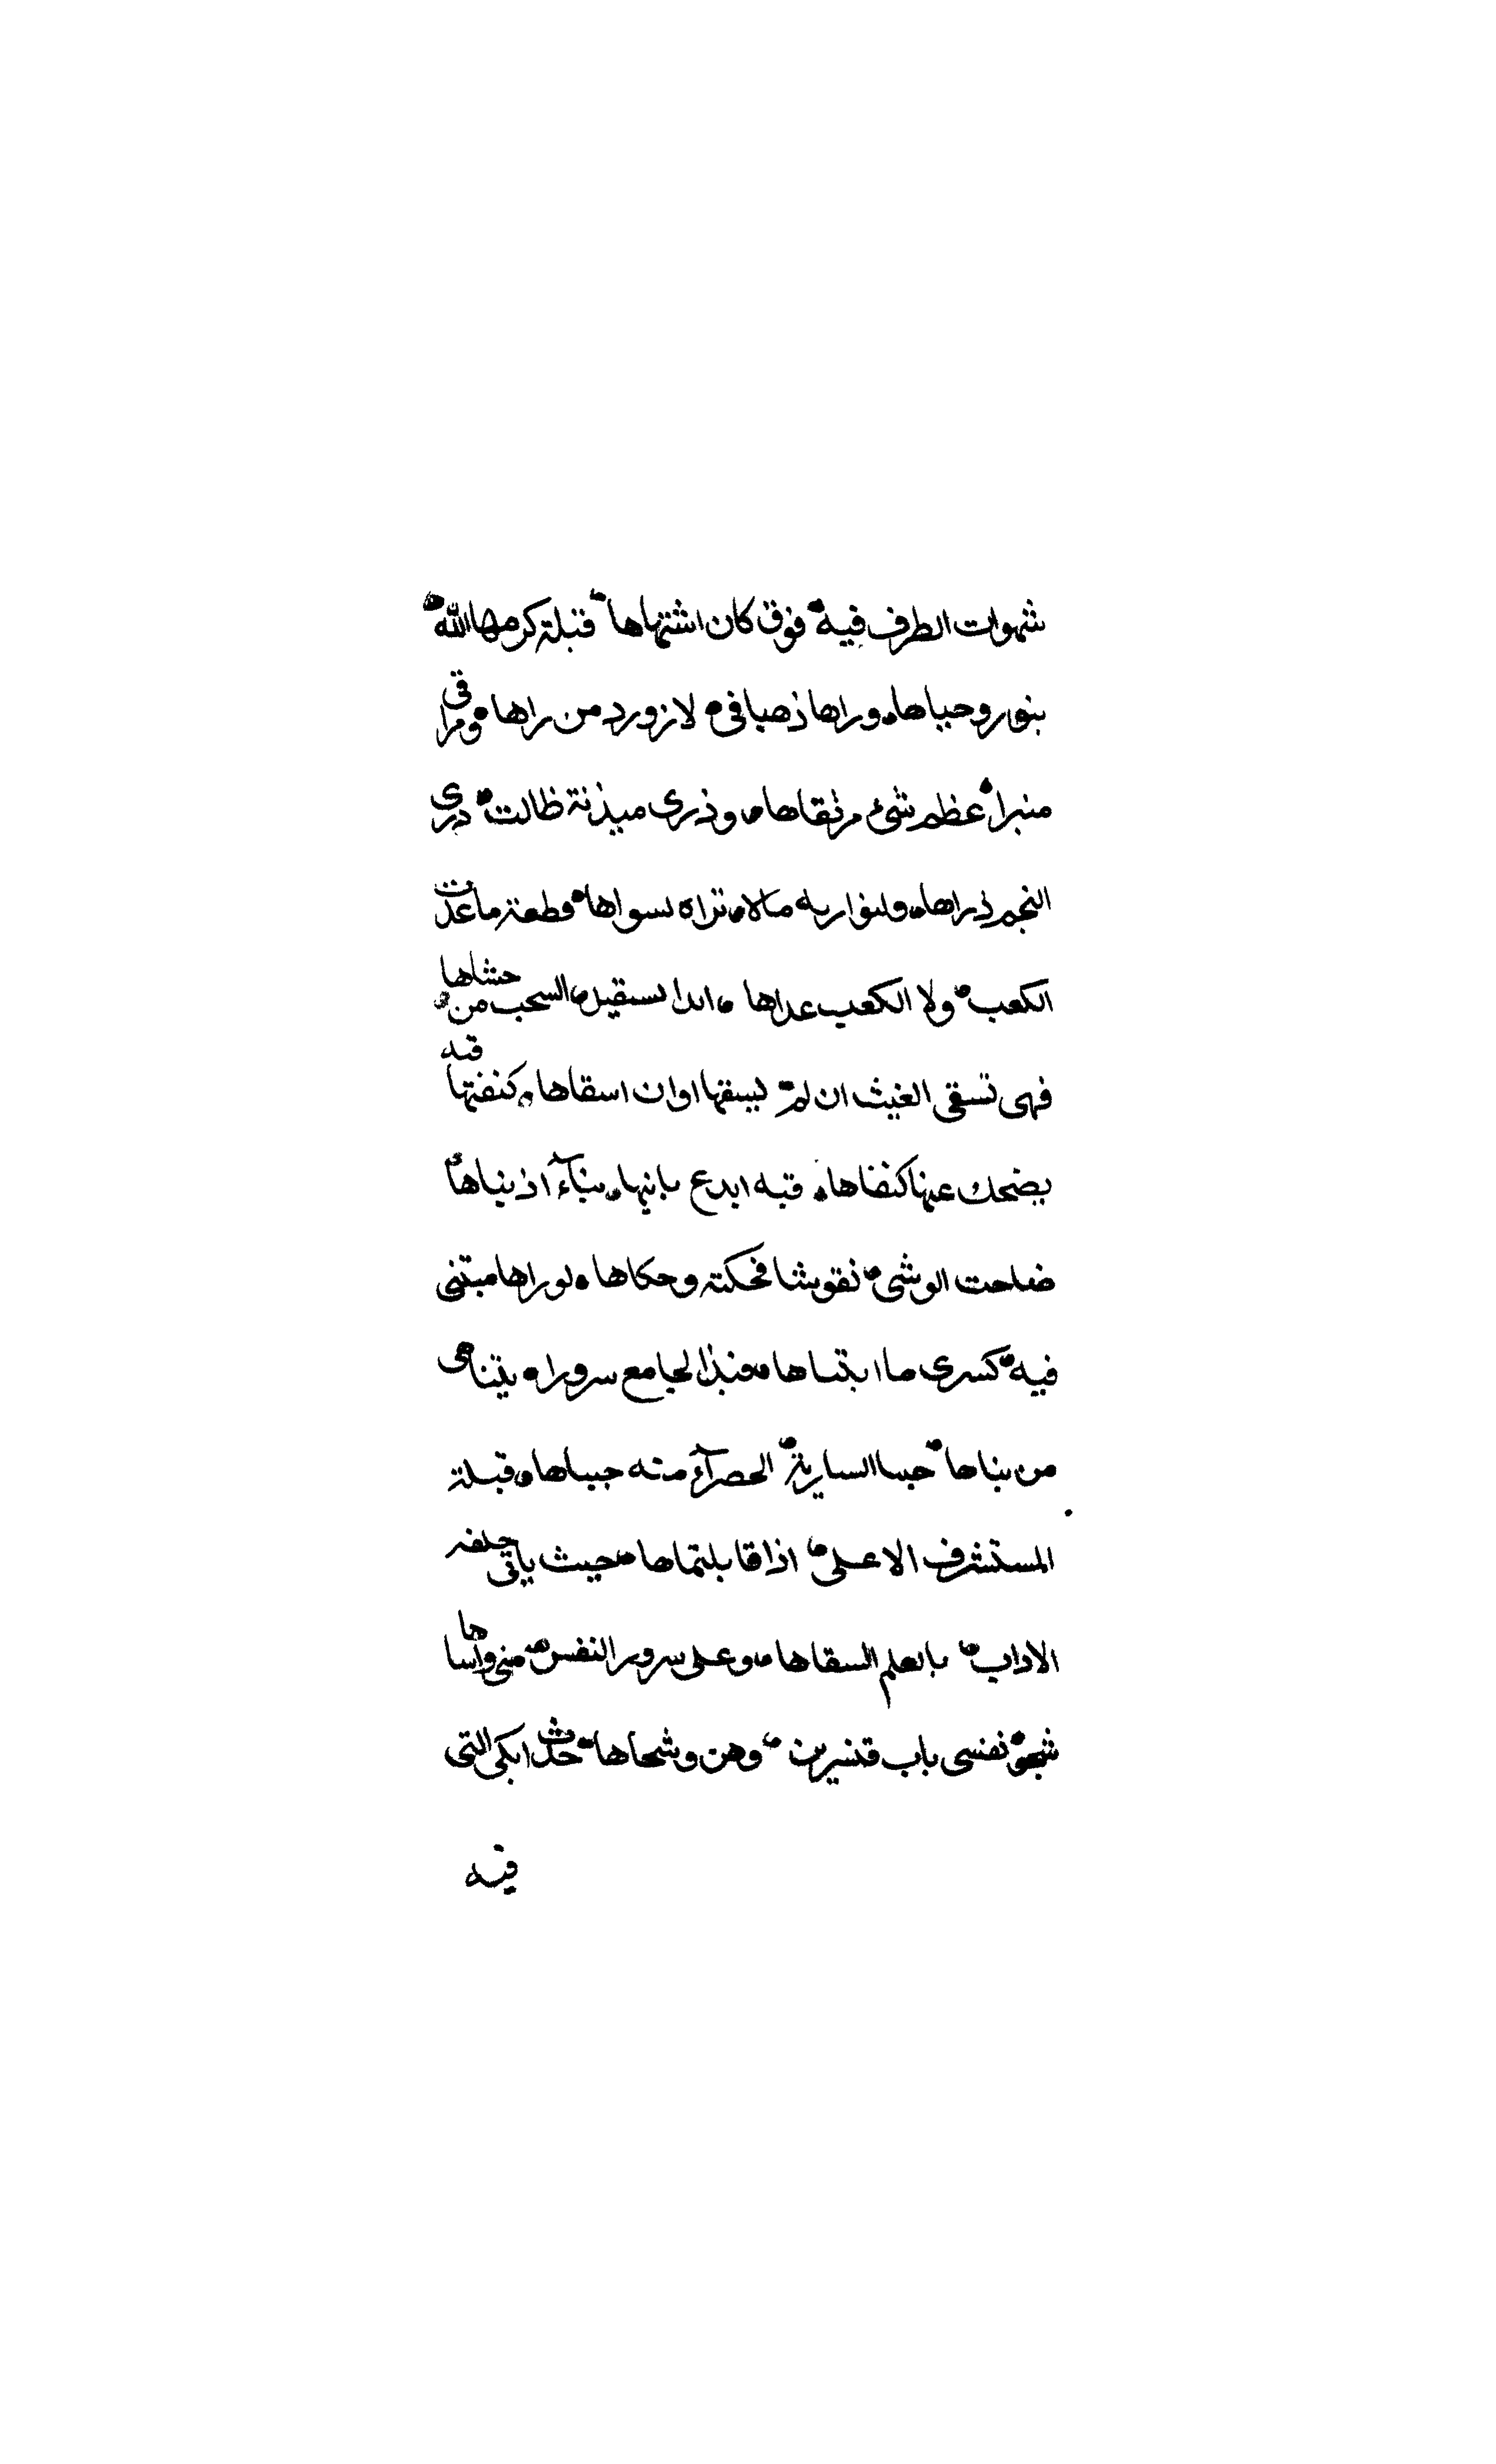 شهوات الطرف فيه فوق كان اشتهاها قبلة كرمها الله
بنور وحباها وراها ذهبا في لازورد من راها ومراقى
منبرا عظم شئ مرتقاها وذرى ميذنة طالت ذرى
النجم ذراها ولنوارية مالا تراه لسواها وطعة ما عدت
الكعب ولا الكعب عداها ابدا يستقبل السحب من حشاها
فهى تسقى الغيث ان لم يسقها او ان اسقاها كنفتها قبه
يضحك عنها كنفاها قبه ابدع بانيها بناء اذ بناها
ضاهت الوشى نقوشا فحكته وحكاها لو راها مبتنى
فيه كسرى ما ابتناها فبذا لجامع سرورا يتناهى
من بناها حيا السارية الحصرآء منه حيياها وقبلة
المستشرف الاعلى اذا قابلتماها حيث ياتى حلفه
الاداب بالعلم السقاها وعلى سرور النفس منى واساها
شجو نفسى باب قنسرين وهن وشجاها حدث ابكى التى
فيه